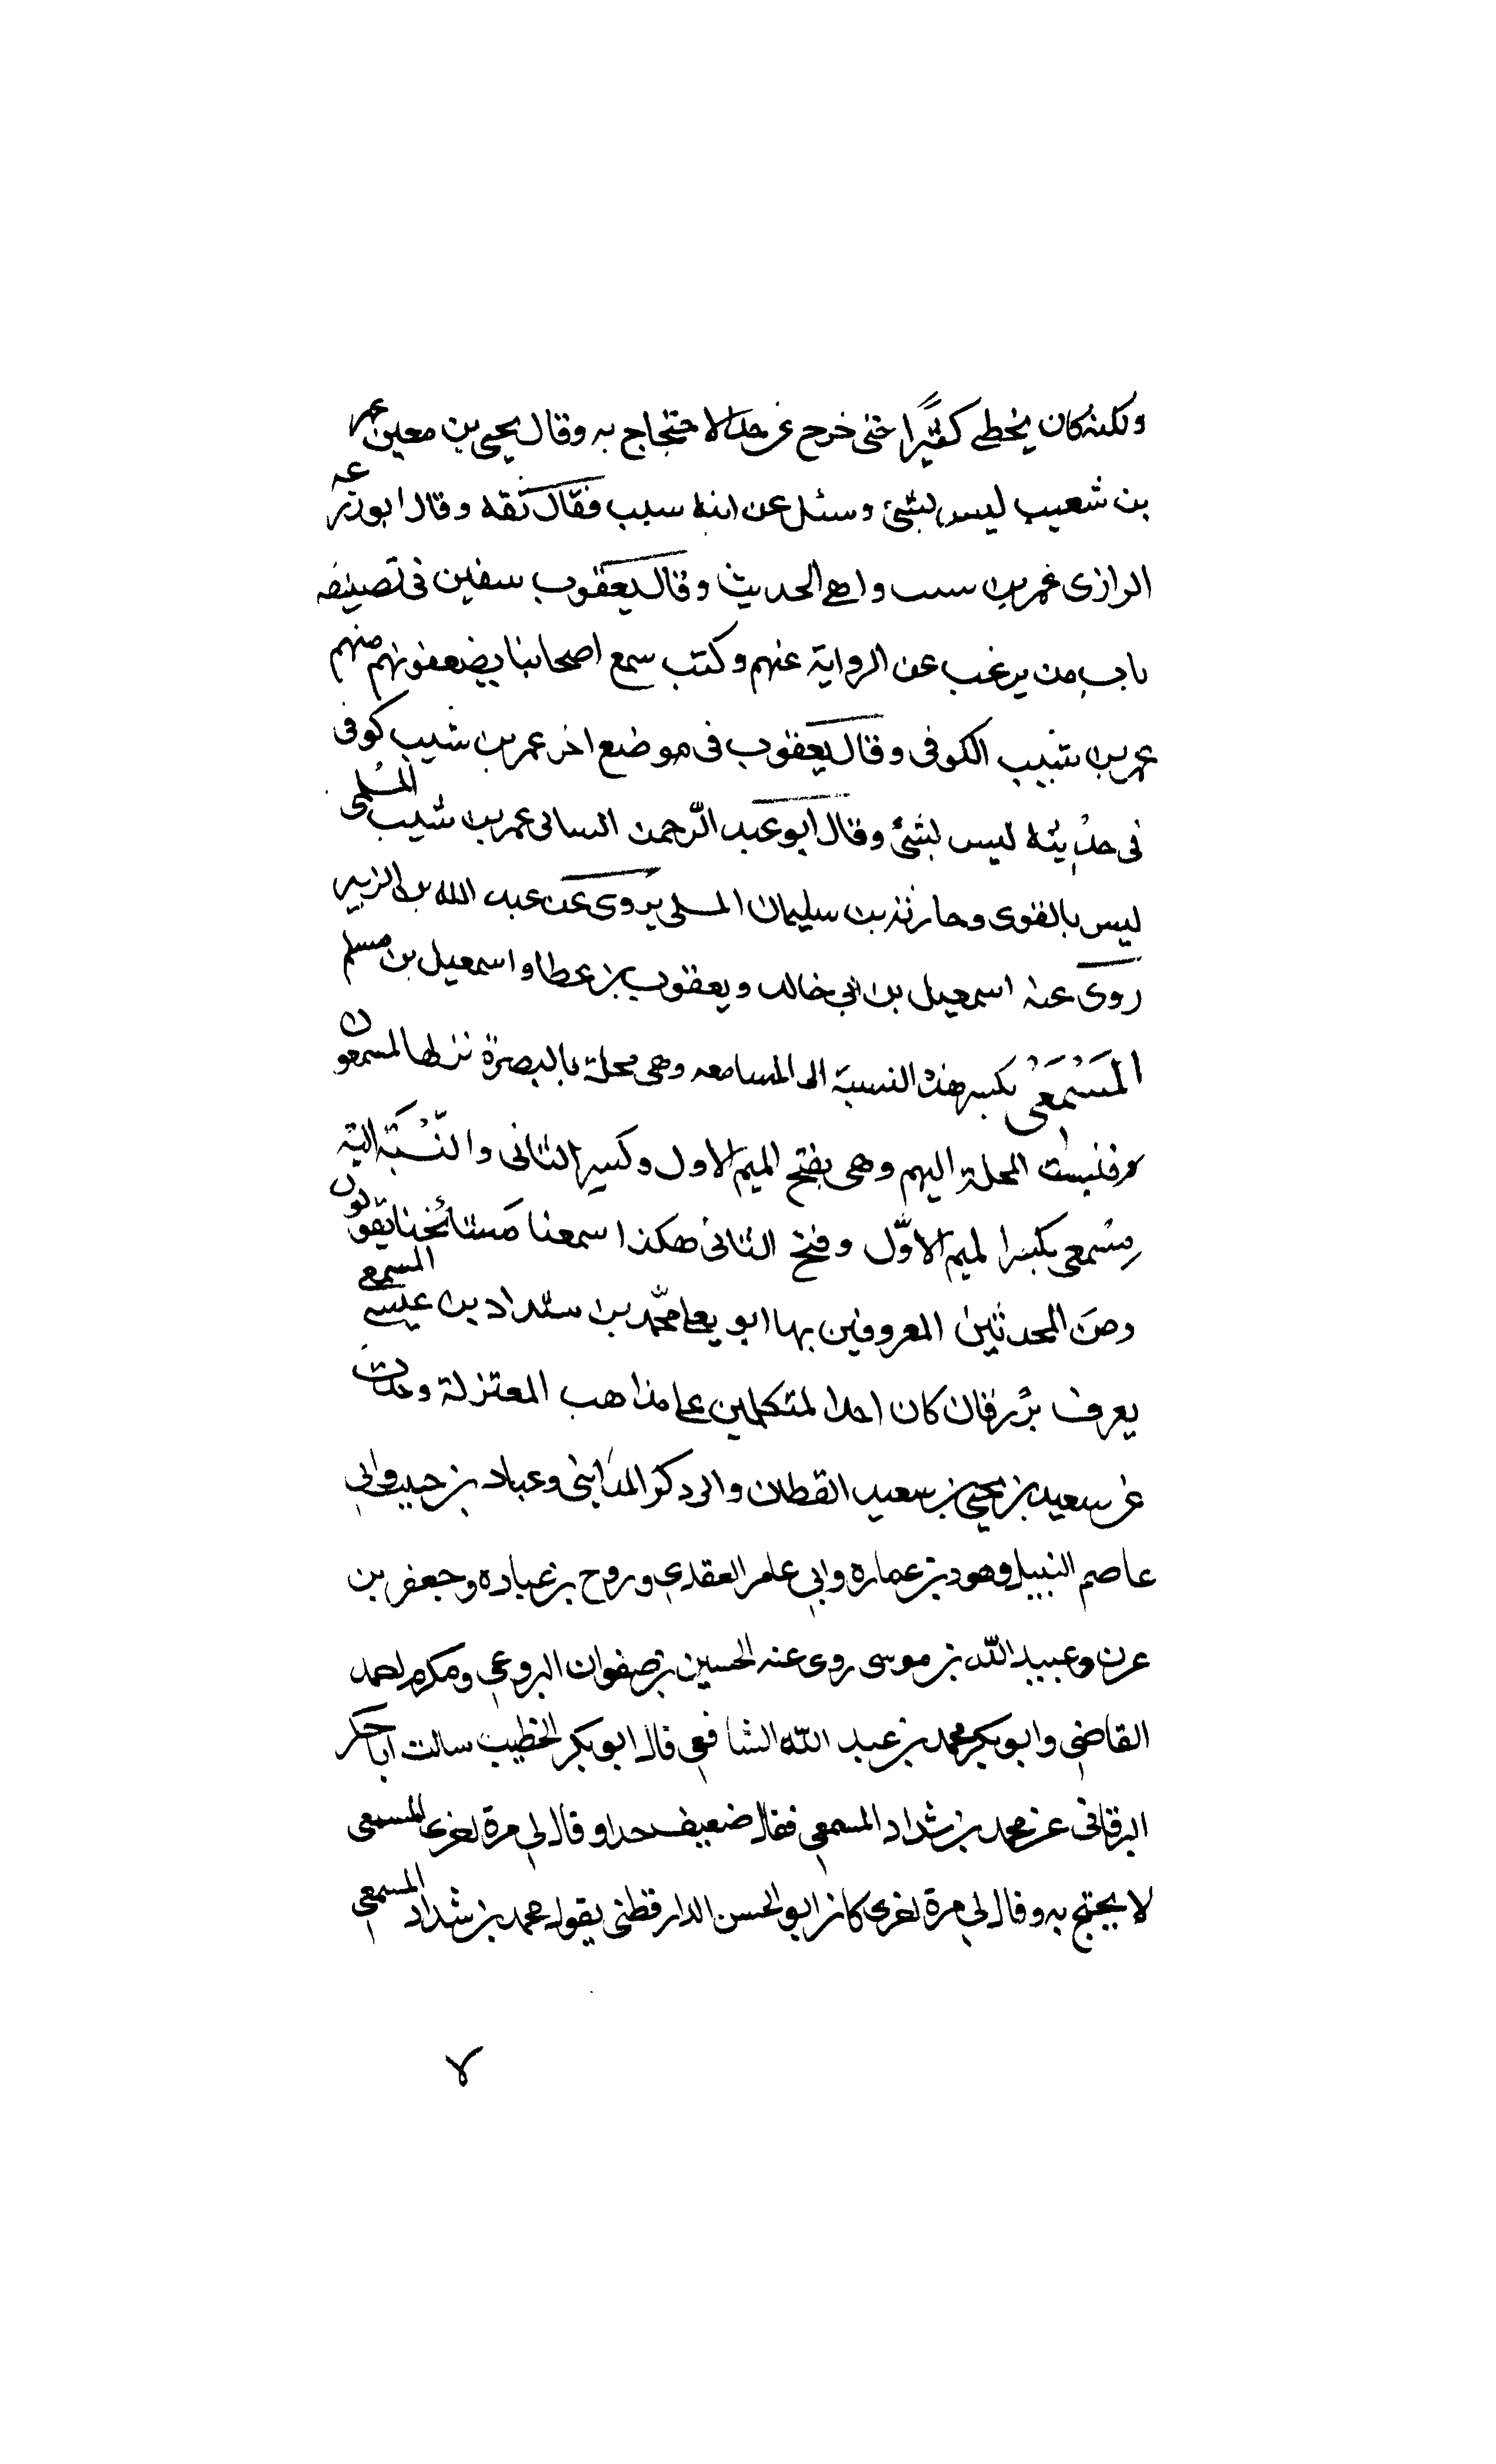 ولكنه كان يخطى كثيرًا حتى خرج عن حد الاحتجاج به وقال يحيى بن معين عمر
بن شعيب ليس بشئ وسئل عن ابنه سبب فقال ثقه وقال ابو زرعه
الرازى عمر بن سبب واهى الحديث وقال يعقوب سفين فى تصنيفه
باب من يرغب عن الرواية عنهم وكتب سمع اصحابنا يضعفونهم منهم
عمر بن شبيب الكوفى وقال يعقوب فى موضع اخر عمر بن شبيب كوفى
فى حديثه ليس بشئ وقال ابو عبد الرّحمن النسائى عمر بن شبيب المُسلى
ليس بالقوى وحارثه بن سليمان المسلى يروى عن عبد الله بن الزبير
روى عنه اسمعيل بن ابى خالد ويعقوب بن عطا واسمعيل بن مسلم
المَسْمَعْى بكسر هذه النسبة الى المسامعه وهى محلة بالبصرة نزلها المسمعون
فنسبت المحلة اليهم وهى بفتح الميم الاول وكسر الثانى والنّسْبَة اليه
مِسْمعى بكسر الميم الاوّل وفتح الثانى هكذا سمعنا مَشائخنا يقولون
ومن المحدثين المعروفين بها ابو يعلى محمّد بن شداد بن عيسى المسمعى
يعرف بزرقان كان احد المتكلمين على مذاهب المعتزلة وحدث
عن سعيد بن يحيى بن سعيد القطان والى ذكر المدَاينى وعباد بن حبيب وابى
عاصم النبيل وهود بن عماره وابى عامر العقدى وروح بن عباده وجعفر بن
عون وعبيد الله بن موسى روى عنه الحسين بن صفوان البروعى ومكرم احمد
القاضى وابو بكر محمد بن عبد الله الشافعى قال ابو بكر الخطيب سالت ابا بكر
البرقانى عن محمد بن شداد المسمعى فقال ضعيف جدا وقال لى مرة اخرى المسمعى
لا يحتج به وقال لى مرة اخرى كان ابو الحسن الدارقطنى يقول محمد بن شداد المسمعى
لا